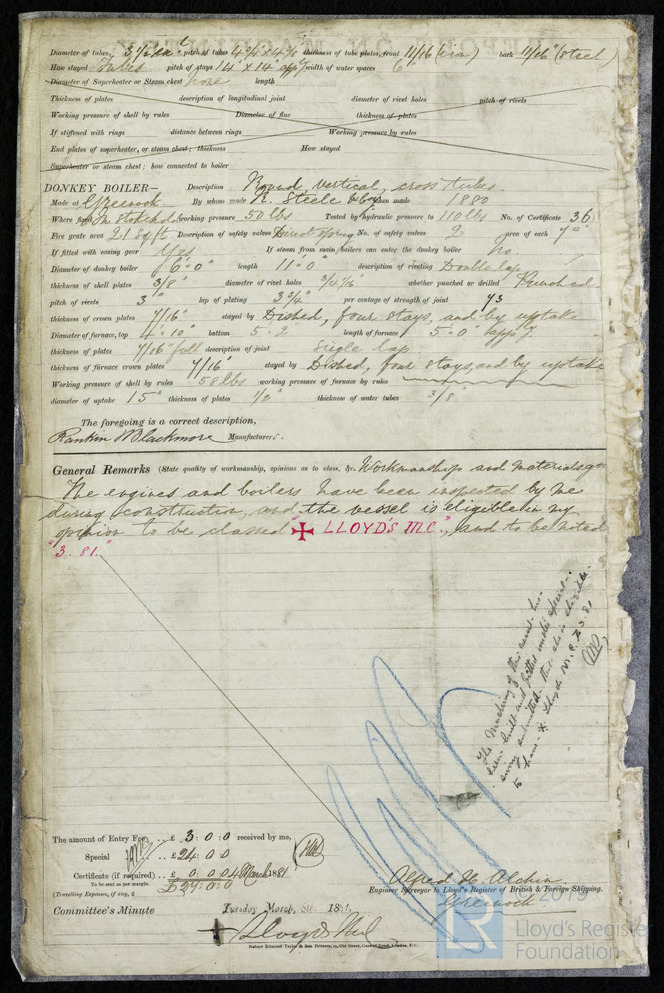 Diameter of tubes, 3 1/2 pitch of tubes 4 3/4 x 4 7/8 thickness of tube plates, front 11/16 (iron) back 11/16" (steel)
How stayed Tubes pitch of stays 14" x 14" app width of water spaces 6
Diameter of Superheater or Steam chest none length
Thickness of plates description of longitudinal joint diameter of rivet holes pitch of rivets
Working pressure of shell by rules Diameter of flue thickness of plates
If stiffened with rings distance between rings Working pressure by rules
End plates of superheater, or steam chest; thickness How stayed
Superheater or steam chest; how connected to boiler
DONKEY BOILER— Description Round, vertical, cross tubes
Made at Greenock By whom made R. Steele & Co when made 1880
Where fixed In Stokehold working pressure 50 lbs Tested by hydraulic pressure to 110 lbs No. of Certificate 36
Fire grate area 21 sq ft Description of safety valves Direct spring No. of safety valves 2 area of each 7"
If fitted with easing gear Yes If steam from main boilers can enter the donkey boiler no.
Diameter of donkey boiler 6' 0" length 11' 0" description of riveting Double lap
thickness of shell plates 3/8" diameter of rivet holes 3/4 whether punched or drilled Punched
pitch of rivets 3" lap of plating 3 3/4" per centage of strength of joint 73
thickness of crown plates 7/16" stayed by Dished, four stays, and by uptake
Diameter of furnace, top 4' 10" bottom 5' 2 length of furnace 5' 0" app
thickness of plates 7/16" full description of joint Single lap
thickness of furnace crown plates 7/16" stayed by Dished, four stays, and by uptake
Working pressure of shell by rules 58 lbs working pressure of furnace by rules
diameter of uptake 15" thickness of plates 1/2" thickness of water tubes 3/8"
The foregoing is a correct description,
Rankin & Blackmore Manufacturers.
General Remarks (State quality of workmanship, opinions as to class, &c. Workmanship and materials
The engines and boilers have been inspected by me
during construction, and the vessel is eligible in my
opinion to be classed "✠ LLOYD'S M.C", and to be noted
"3. 81."
The Machinery of this vessel has
been built and fitted under special
survey submitted this ship eligible
to have ✠ Lloyds M.C. 3 81
The amount of Entry Fee .. £ 3 : 0 : 0 received by me,
Special .. £ 24 : 0 : 0
Certificate (if required) .. £ 0 : 0 : 0 4 March 1881
To be sent as per margin. £27 : 0 : 0
(Travelling Expenses, if any, £
Alfred H. Alchin
Engineer Surveyor to Lloyd's Register of British & Foreign Shipping.
Greenock
Committee's Minute Tuesday March, 8th 188
+ Lloyds M.C.
Robert Edmund Taylor & Son Printers, 19, Old Street, Goswell Road, London, E.C.
LR
2019
Lloyd's Register
Foundation